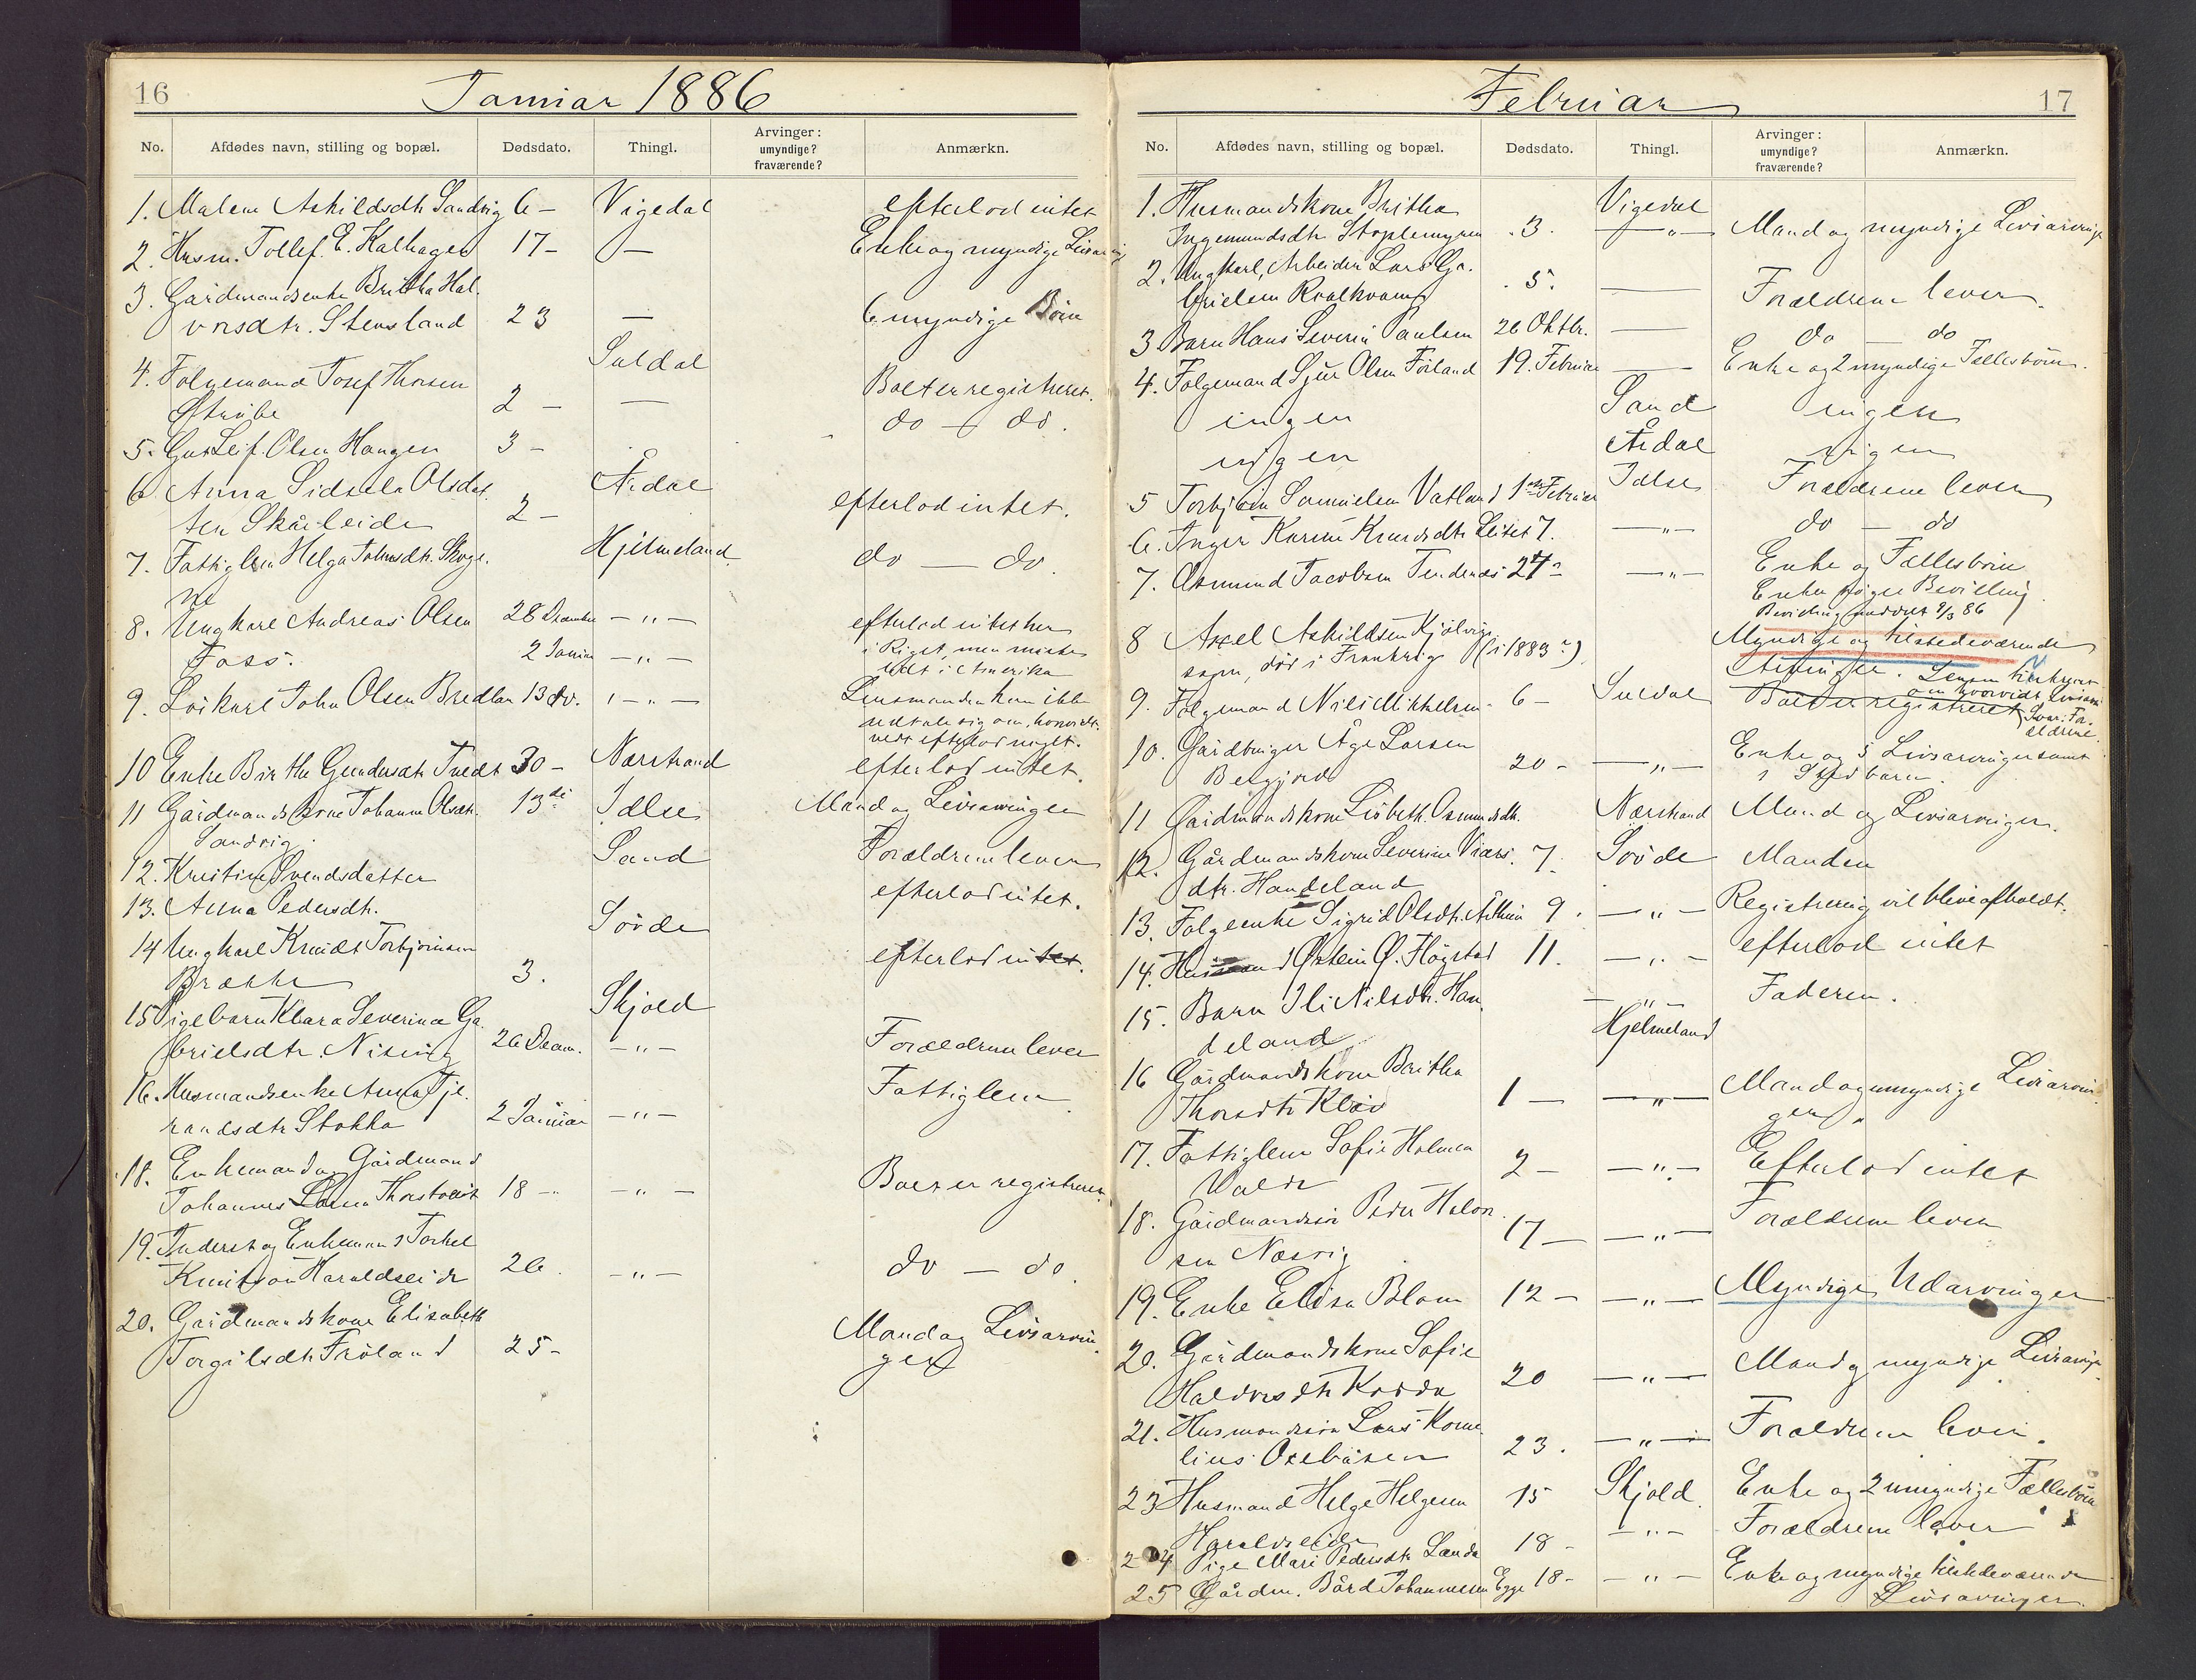 16
Januar 1886
No. Afdødes navn, stilling og bopæl. Dødsdato. Thingl. Arvinger: umyndige? fraværende? Anmærkn.
1. Malene Askildsdtr Sandvig 6 – Vigedal efterlod intet
2. Husm. Tollef E. Kalhagen 17 – — Enke og myndige Livsarving
3. Gaardmandsenke Britha Hal-
vorsdtr. Stensland 23 — 6 myndige Børn
Suldal
4. Følgemand Josef Thorsen
2 – — Boet er registreret.
5. Olsen Haugen 3 – do — do.
6 Anna Sidsela Olsdat
Årdal
ter Skårleide 2 – efterlod intet.
7. Fattiglem Helga Johnsdtr. Skoge.
Hjelmeland
ne do — do.
8. Ungkarl Andreas Olsen 28 December — " — efterlod intet her
Foss. 2 Januar — " — i Riget, men
i Amerika
9. John Olsen 13 do. — " — Lensmanden kan ikke
udtale sig om, hvorvidt
efterlod noget.
10 Enke Birthe Gundersdtr Tvedt 30 – Nærstrand efterlod intet.
11 Gårdmandskone Johanne Olsdtr. 13de Idlse Mand og Livsarvinger
Sandvig.
12. Kristine Svendsdatter Sand Forældrene lever
13. Anna Pedersdtr. efterlod intet.
14 Ungkarl Knudt Torbjørnsen Søvde
Brække 3. efterlod intet.
15 Pigebarn Klara Severine Ga- Skjold
brielsdtr. Nising 26 Decem. — " — Forældrene lever
16. Husmandsenke Anna Tje-
randsdtr Stokka 2 Januar — " — Fattiglem
18. Enkemand og Gårdmand
Johannes Larsen Thorstveit 18 – — " — Boet er registreret.
19. Inderst og Enkemand Torkel
Knutson Haraldseide 26. — " — do — do.
20. Gaardmandskone Elisabeth
Torgilsdtr Frøland 25 – Mand og Livsarvin-
ger
17
Februar
No. Afdødes navn, stilling og bopæl. Dødsdato. Thingl. Arvinger: umyndige? fraværende? Anmærkn.
1. Husmandskone Britha Vigedal
Ingemundsdtr Staplemyren 3. — " — Mand og myndige Livsarvinge
2. Ungkarl, Arbeider Lars Ga-
brielsen 5. — Forældrene lever.
3 Barn Hans Severin Paulsen 26 Oktbr. — do — do
4. Følgemand Sjur Olsen Førland 19. Februar — Enke og 2 myndige Fællesbørn.
ingen Sand ingen
ingen Årdal ingen
5 Torbjørn Samuelsen Vatland 1ste Februar Idlse Forældrene lever
6. Inger Karine Knudsdtr Leitet 7. — " — do — do
7. Asmund Jacobsen Tendenes 27 – — " — Enke og Fællesbørn
Enken søger Bevilling
Bevilling 9/3 86
8 Axel Askildsen Kjølvig Myndige og tilstedeværende
sagn, død i Frankrig (i 1883?) Arvinger.
9. Følgemand Nils Mikkelsen 6 – Suldal Boet er registreret
10. Gårdbruger Åge Larsen
20 – — " — Enke og 5 Livsarvinger samt
1 Stedbarn.
11 Gaardmandskone Lisbeth Osmundsdtr. Nærstrand Mand og Livsarvinger.
12. Gårdmandskone Severine Viers- 7. Søvde Manden
dtr. Handeland
13. Følgeenke Sigrid Olsdtr. 9. — " — Registrering vil blive afholdt.
14. Husmand Østein Ø. Fløgstad 11. — " — efterlod intet
15. Barn Ili Nilsdtr. Han- — " — Faderen.
deland Hjelmeland
16 Gårdmandskone Britha
Thorsdtr Kløv 1 — — " — Mand og umyndige Livsarvin-
ger
17. Fattiglem Sofie Holmen
Valde 2 – — " — Efterlod intet
18. Gårdmandssøn Peder Halvor-
sen Næsvig 17 – — " — Forældrene lever
19. Enke Elisa Blom 12 – — " — Myndige Udarvinger
20. Gårdmandskone Sofie
Haldorsdtr 20 — " — Mand og myndige Livsarvinge
21. Husmandssøn Lars Korne-
lius Oxebåsen 23. — " — Forældrene lever.
23 Husmand Helge Helgesen 15 Skjold. Enke og 2 umyndige Fællesbørn
Haraldseide
24 Pige Mari Pedersdtr Landa 18 – — " — Forældrene lever
25 Gårdm. Bård Johannessen Egge 18 – — " — Enke og myndige tilstedeværende
Livsarvinger.